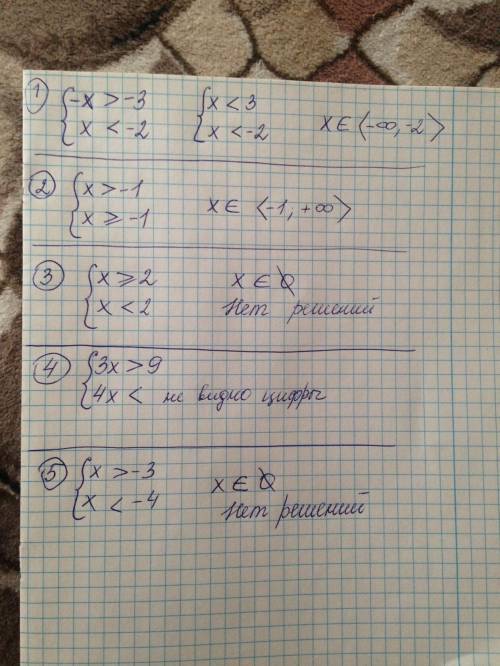 ① { -x > -3 { x < 3 x ∈ ⟨-∞, -2⟩
x < -2 x < -2
② { x > -1 x ∈ ⟨-1, +∞⟩
x ⩾ -1
③ { x ⩾ 2 x ∈ ∅
x < 2 Нет решений
④ { 3x > 9
4x < не видно цифры
⑤ { x > -3 x ∈ ∅
x < -4 Нет решений